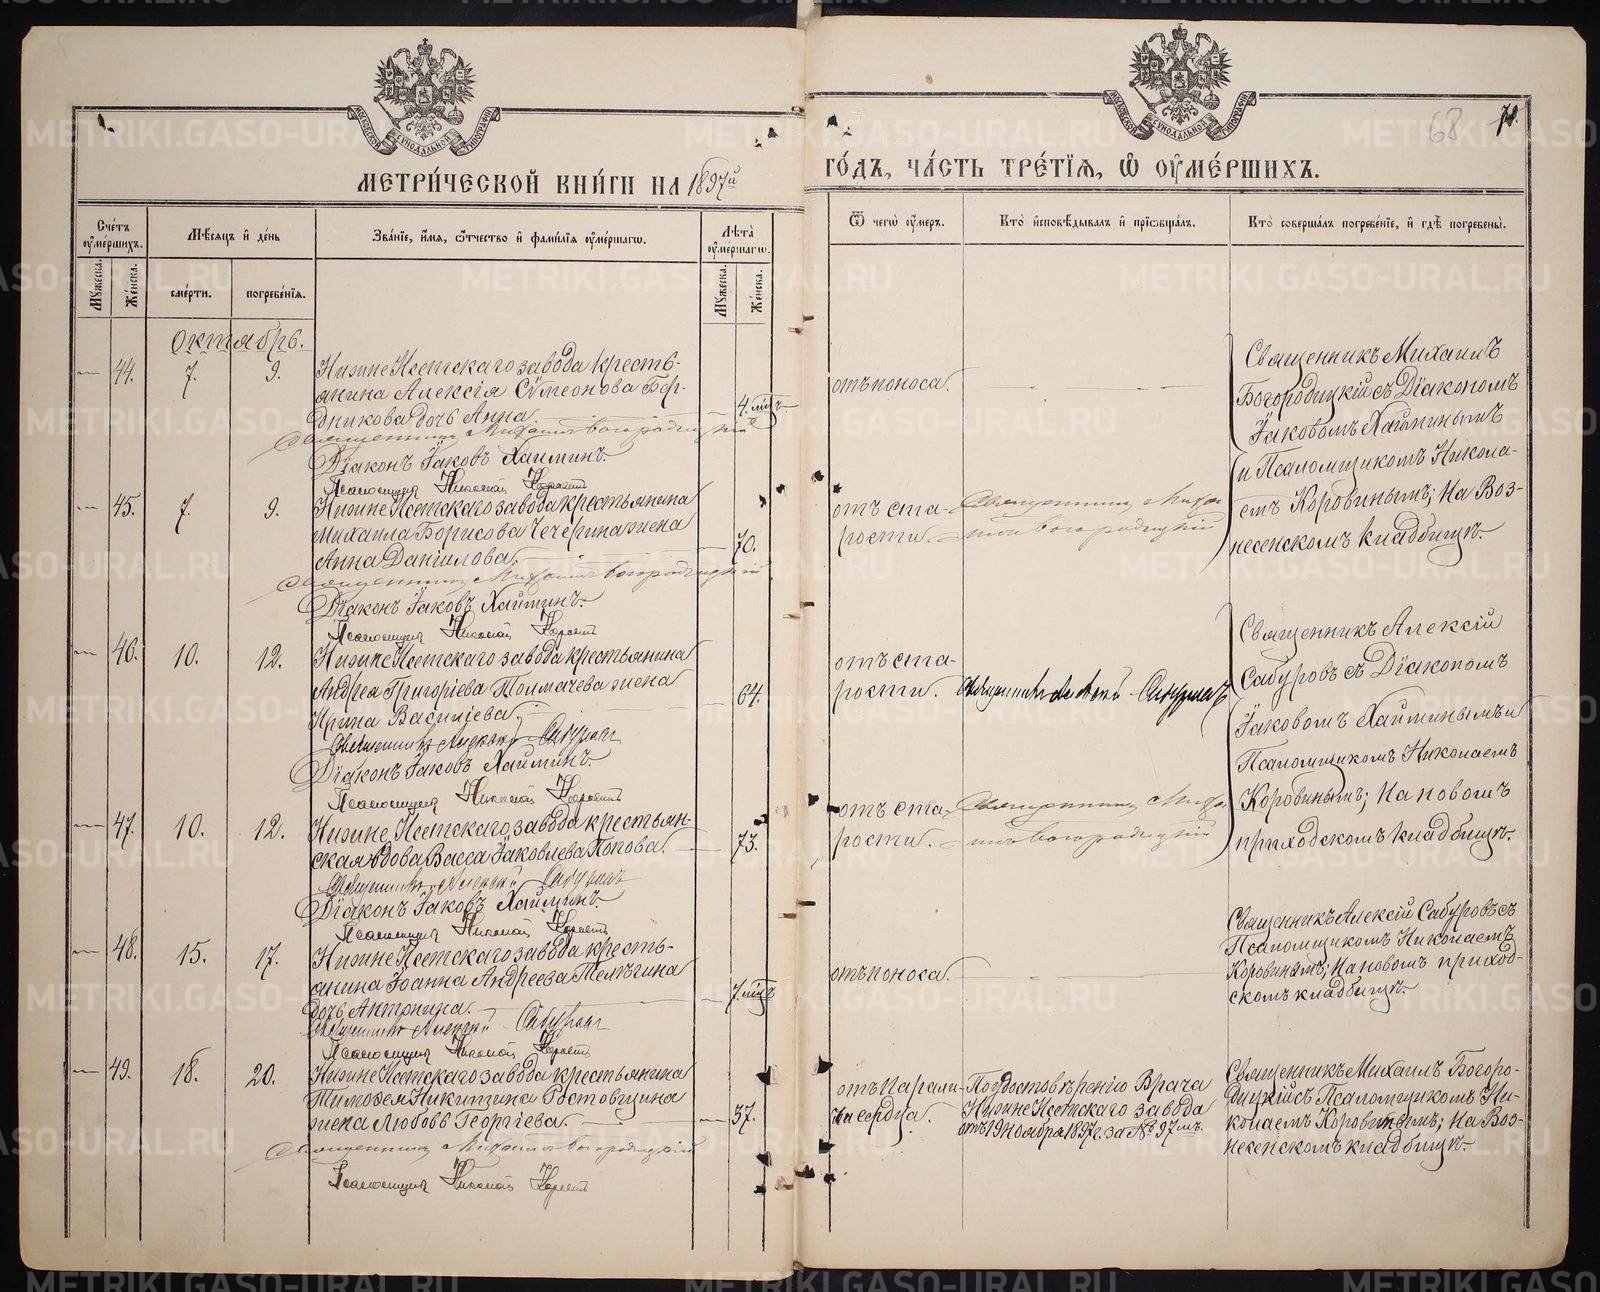 МЕТРИ́ЧЕСКОЙ КНИ́ГИ НА 1897й
ГО́ДЪ, ЧА́СТЬ ТРЕ́ТЇѦ, Ѡ҆ ОУ҆МЕ́РШИХЪ.
68
Сче́тъ оу҆ме́ршихъ.
Му́жеска.
Же́нска.
Мѣ́сяцъ и҆ де́нь
сме́рти.
погребе́нїѧ.
Зва́нїе, и҆́мѧ, ѻ҆́тчество и҆ фами́лїѧ оу҆ме́ршагѡ.
Лѣ́та оу҆ме́ршагѡ.
Му́жеска.
Же́нска.
Ѿ чегѡ̀ оу҆́меръ.
Кто̀ и҆сповѣ́дывалъ и҆ прїѡбща́лъ.
Кто̀ соверша́лъ погребе́нїе, и҆ гдѣ̀ погребены̀.
Октябрь.
— 44. 7. 9.
Нижне Исетскаго завода кресть-
янина Алексія Сѵмеонова Бер-
дникова дочь Анна. — 4. мѣц
Священникъ Михаилъ Богородицкій
Діаконъ Іаковъ Хайминъ.
Псаломщикъ Николай Коровинъ
отъ поноса.
Священникъ Михаилъ
Богородицкій съ Діакономъ
Іаковомъ Хайминымъ
и Псаломщикомъ Никола-
емъ Коровинымъ; На Воз-
несенскомъ кладбищѣ.
— 45. 7. 9.
Нижне Исетскаго завода крестьянина
Михаила Борисова Чечерина жена
Анна Даніилова. — 70.
Священникъ Михаилъ Богородицкій
Діаконъ Іаковъ Хайминъ.
Псаломщикъ Николай Коровинъ
отъ ста-
рости.
Священникъ Миха-
илъ Богородицкій
— 46. 10. 12.
Нижне Исетскаго завода крестьянина
Андрея Григоріева Толмачева жена
Ирина Василіева. — 64.
Священникъ Алексій Сабуровъ
Діаконъ Іаковъ Хайминъ.
Псаломщикъ Николай Коровинъ
отъ ста-
рости.
Священникъ Алексій Сабуровъ
Священникъ Алексій
Сабуровъ съ Діакономъ
Іаковомъ Хайминымъ и
Псаломщикомъ Николаемъ
Коровинымъ; На новомъ
приходскомъ кладбищѣ.
— 47. 10. 12.
Нижне Исетскаго завода крестьян-
ская вдова Васса Іаковлева Попова. — 73.
Священникъ Алексій Сабуровъ
Діаконъ Іаковъ Хайминъ.
Псаломщикъ Николай Коровинъ
отъ ста-
рости.
Священникъ Миха-
илъ Богородицкій
— 48. 15. 17.
Нижне Исетскаго завода кресть-
янина Іоанна Андреева Телѣгина
дочь Антонина. — 7. мѣц
Священникъ Алексій Сабуровъ
Псаломщикъ Николай Коровинъ
отъ поноса.
Священникъ Алексій Сабуровъ съ
Псаломщикомъ Николаемъ
Коровинымъ; На новомъ приход-
скомъ кладбищѣ.
— 49. 18. 20.
Нижне Исетскаго завода крестьянина
Тимофея Никитина Ростовщина
жена Любовь Георгіева. — 37.
Священникъ Михаилъ Богородицкій
Псаломщикъ Николай Коровинъ
отъ Парали-
ча сердца.
По удостовѣренію Врача
Нижне Исетскаго завода
отъ 19 Ноября 1897 г. за № 97мъ.
Священникъ Михаилъ Богоро-
дицкій съ Псаломщикомъ Ни-
колаемъ Коровинымъ; На Воз-
несенскомъ кладбищѣ.
METRIKI.GASO-URAL.RU